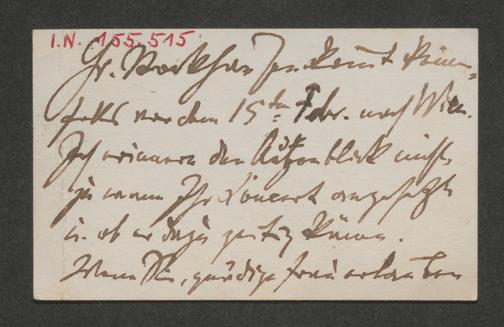 I.N. 155.515
Hr. kommt
vor dem 15ten Febr. nach Wien.
Ich erinnere den Augenblick nicht
zu wann Ihr Concert angesetzt
u. ob er dazu
Wenn Sie, gnädige Frau erlauben